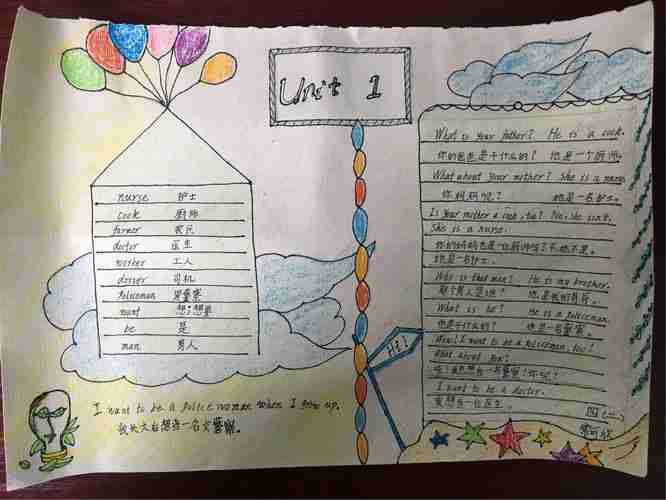 Unit 1
nurse 护士
cook 厨师
farmer 农民
doctor 医生
worker 工人
driver 司机
policeman 男警察
want 想;想要
be 是
man 男人
I want to be a police woman when I grow up.
我长大后想当一名女警察。
Hi!
What is your father? He is a cook.
你的爸爸是干什么的? 他是一个厨师。
What about your mother? She is a nurse.
你妈妈呢? 她是一名护士。
Is your mother a cook, too? No, she isn't.
She is a nurse.
你妈妈也是一名厨师吗?不,她不是。
她是一名护士。
Who is that man? He is my brother.
那个男人是谁? 他是我的哥哥。
What is he? He is a policeman.
他是干什么的? 他是一名警察。
Wow! I want to be a policeman, too!
What about you?
哇!我也想当一名警察!你呢?
I want to be a doctor.
我想当一位医生。
四(二)